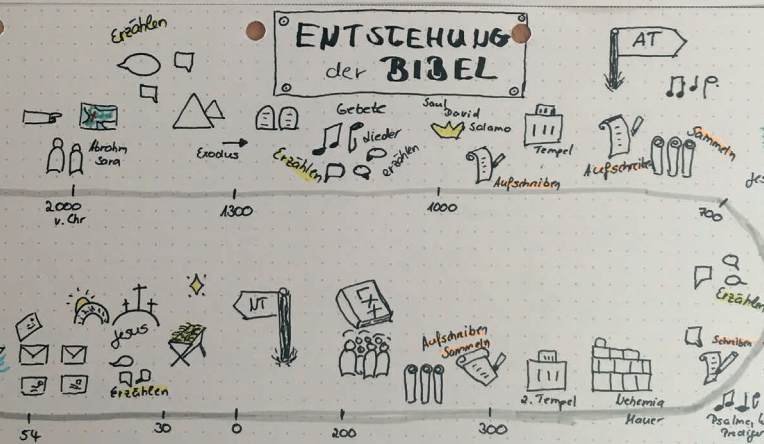 ENTSTEHUNG
der BIBEL
Erzählen
AT
Abraham
Sara
Exodus
Gebete
Lieder
Erzählen
erzählen
Saul
David
Salomo
Aufschreiben
Tempel
Aufschreiben
Sammeln
2000
v. Chr
1300
1000
700
Erzählen
Schreiben
NT
Jesus
Erzählen
Aufschreiben
Sammeln
2. Tempel
Nehemia
Mauer
54
30
0
200
300